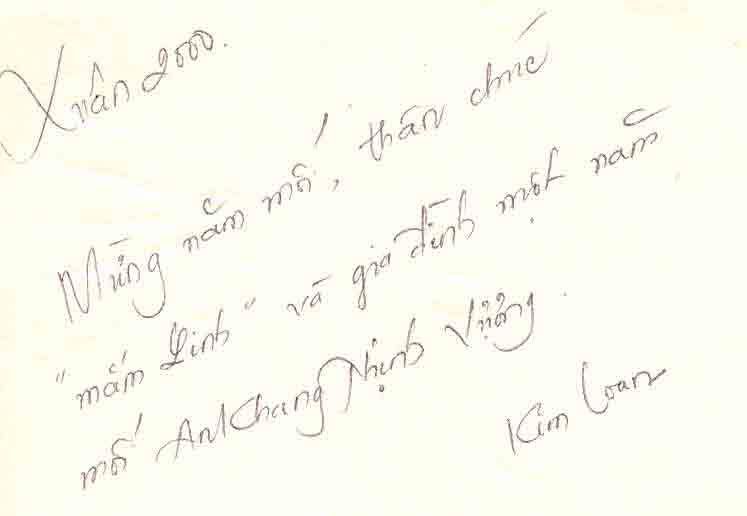 Xuân 2000.
Mừng năm mới, thân chúc
"mắm Linh" và gia đình một năm
mới An Khang Thịnh Vượng.
Kim Loan